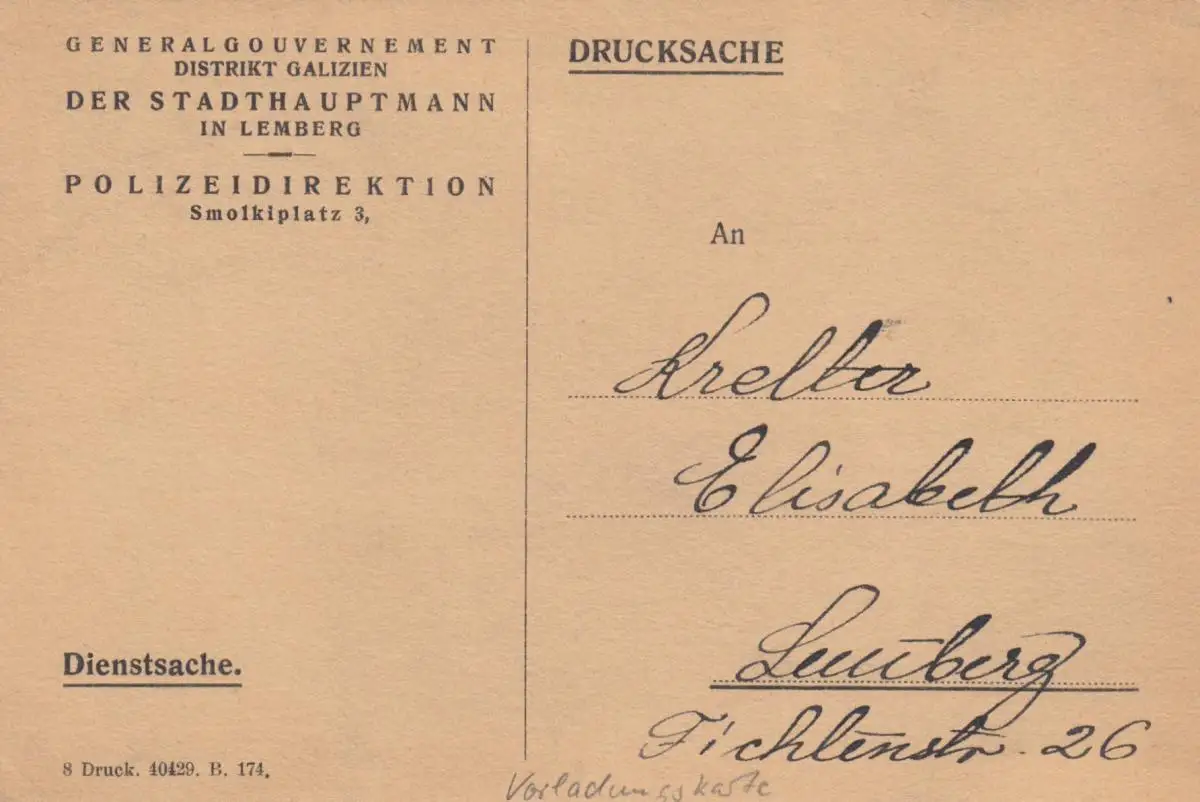 GENERALGOUVERNEMENT
DISTRIKT GALIZIEN
DER STADTHAUPTMANN
IN LEMBERG
POLIZEIDIREKTION
Smolkiplatz 3,
Dienstsache.
8 Druck. 40429. B. 174.
DRUCKSACHE
An
Krelter
Elisabeth
Lemberg
Fichtenstr. 26
Vorladungskarte